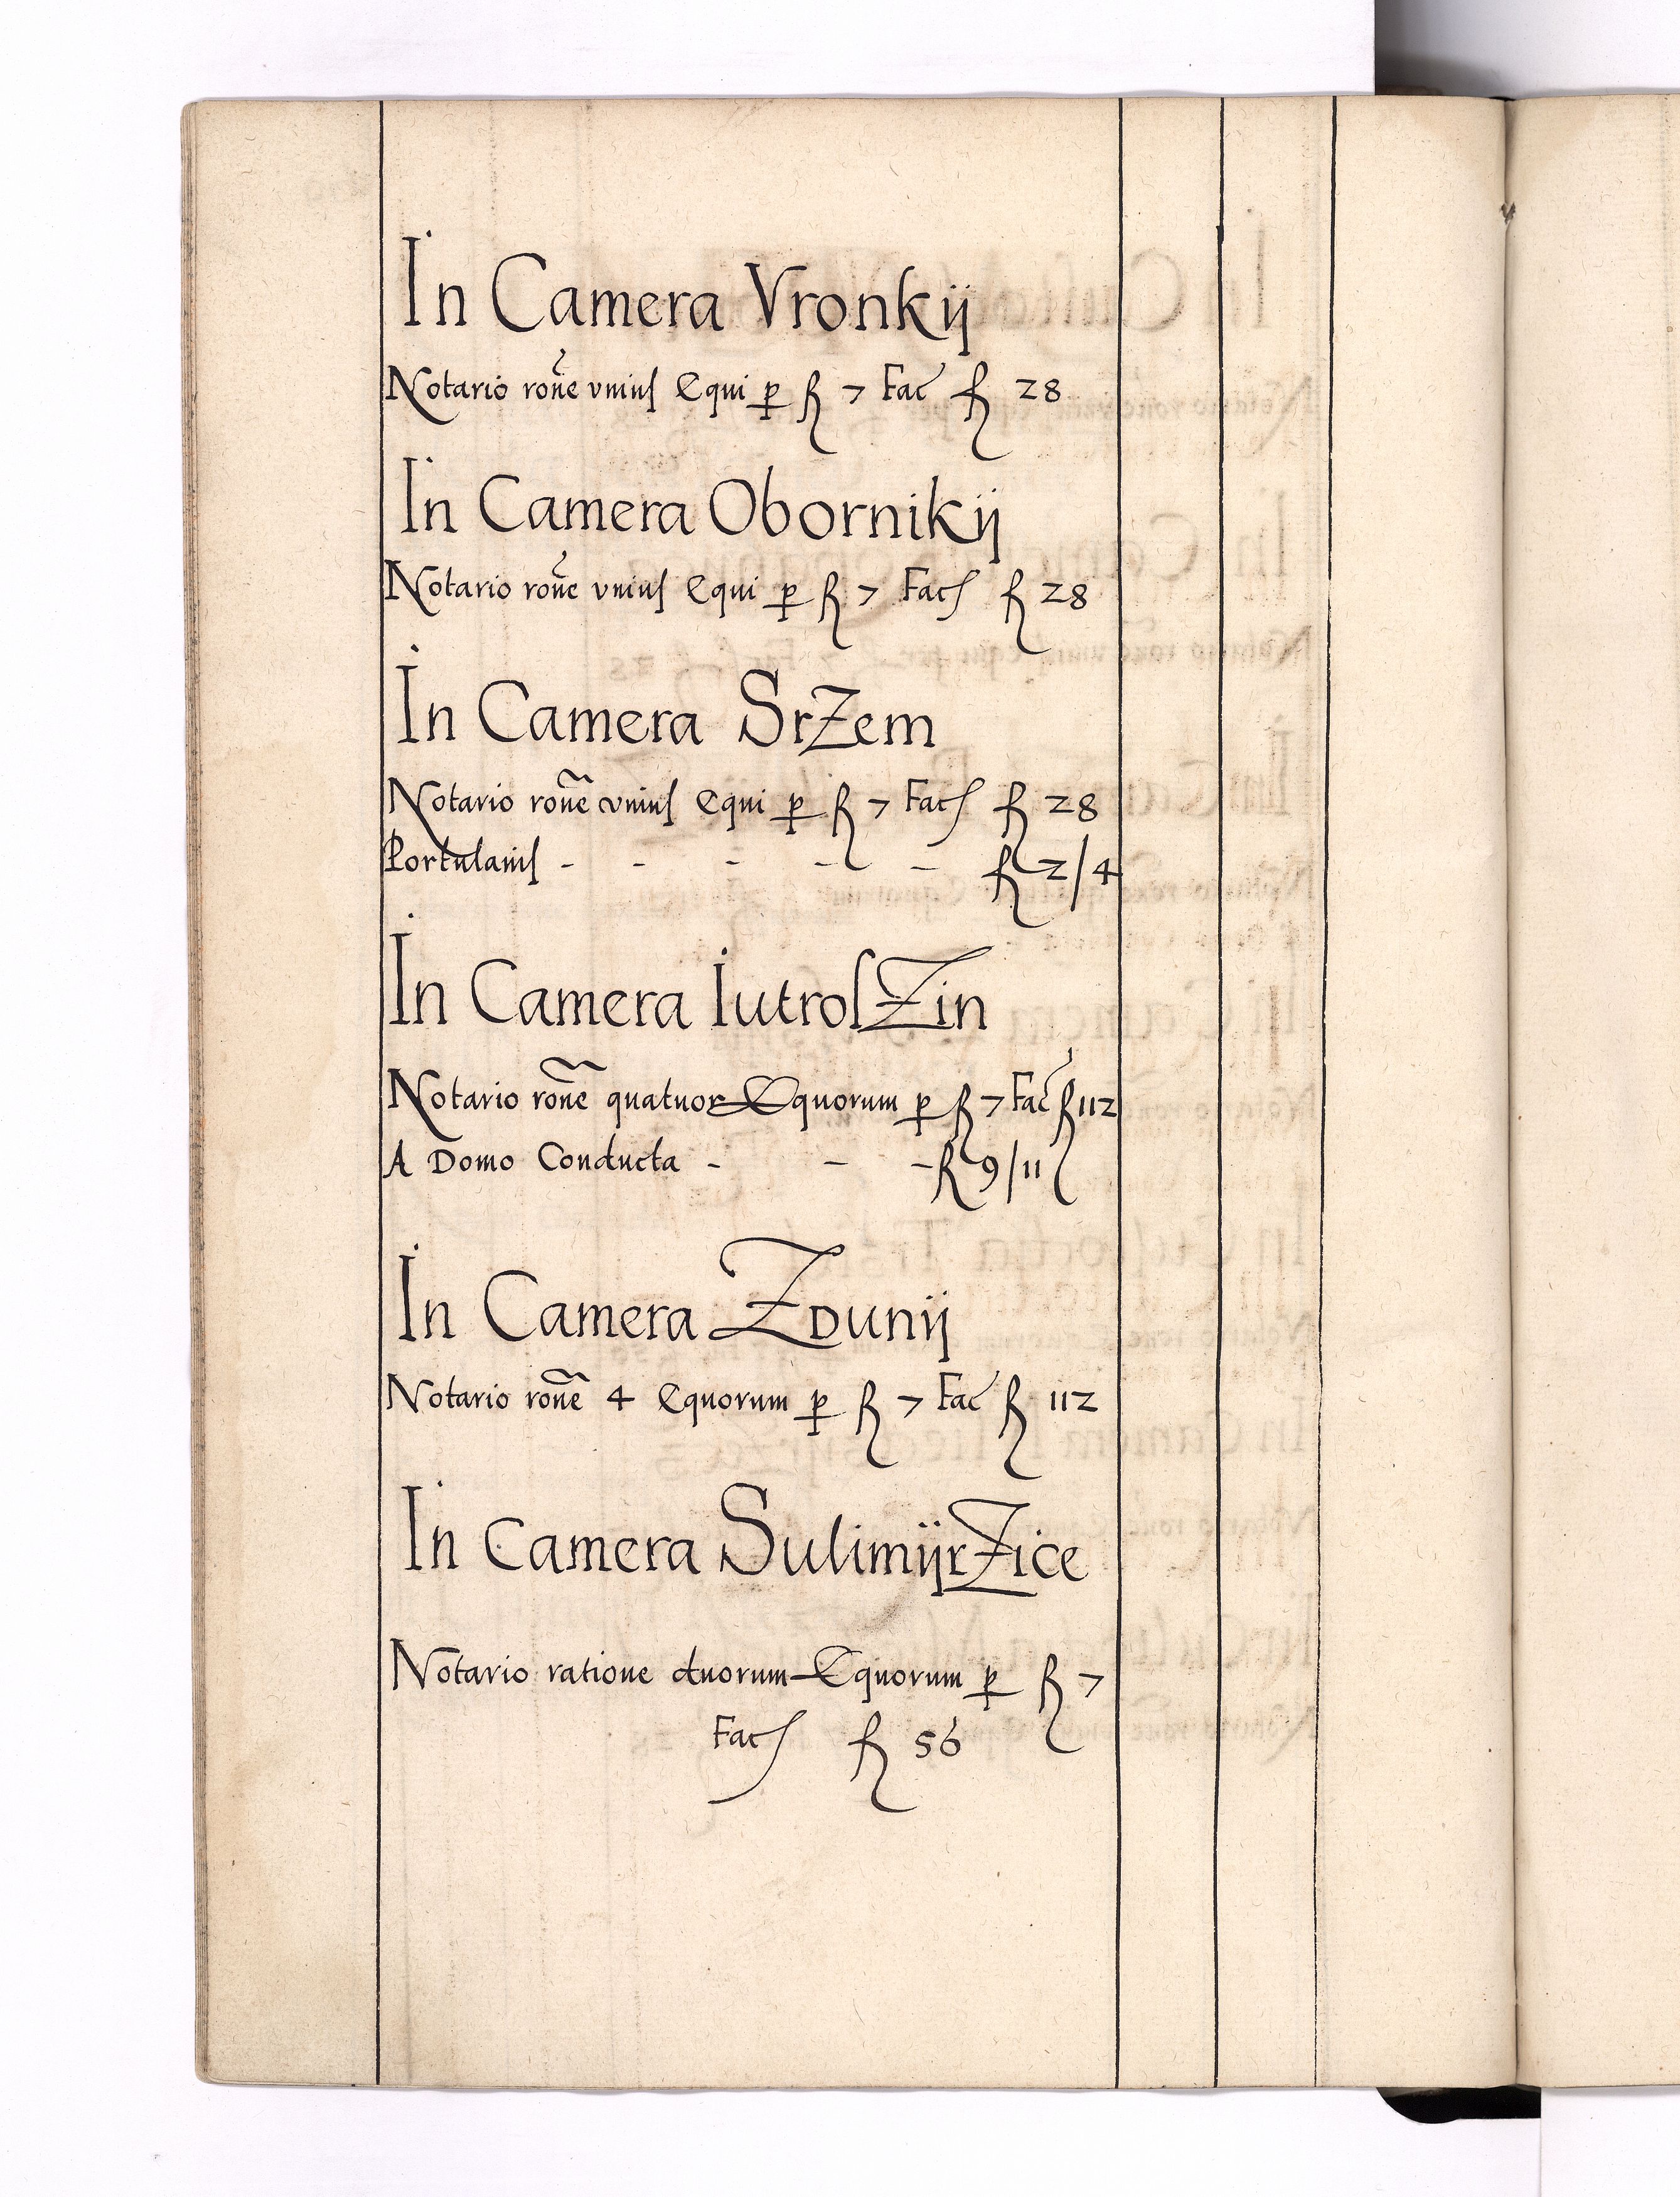 In Camera Vronkij
Notario rone vnius Equi p fl 7 Fac fl 28
In Camera Obornikij
Notario rone vnius Equi p fl 7 Fac fl 28
In Camera Srzem
Notario rone vnius Equi p fl 7 Fac fl 28
Portulanis - - - - - fl 2/4
In Camera Iutroszin
Notario rone quatuor Equorum p fl 7 Fac fl 112
A Domo Conducta - - - fl 9/11
In Camera Zdunij
Notario rone 4 Equorum p fl 7 Fac fl 112
In Camera Sulimijrzice
Notario ratione duorum Equorum p fl 7
Fac fl 56